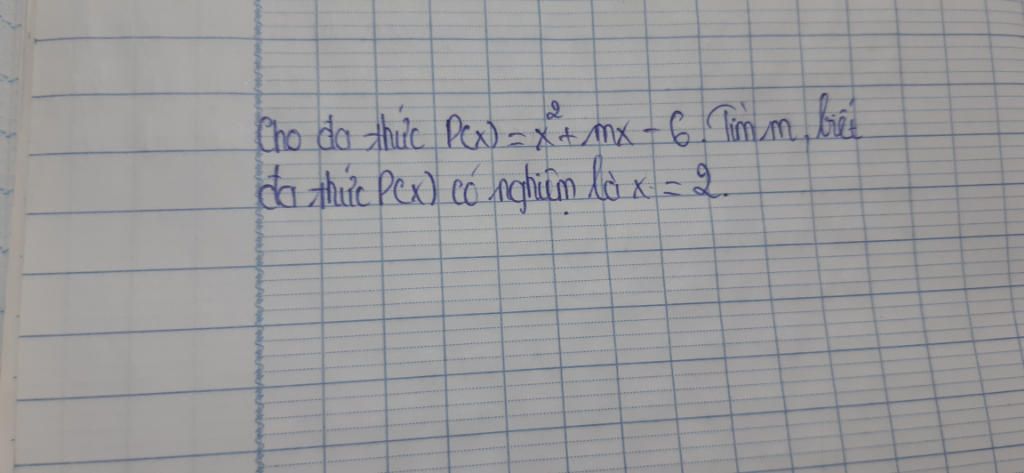 Cho đa thức P(x) = x² + mx - 6. Tìm m, biết
đa thức P(x) có nghiệm là x = 2.